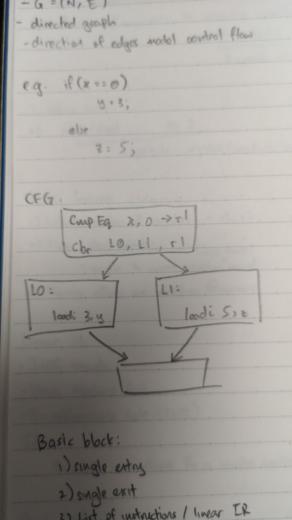 - G = (N, E)
- directed graph
- direction of edges model control flow
e.g. if (x == 0)
y = 3;
else
z = 5;
CFG:
Cmp Eq x, 0 → r1
cbr L0, L1, r1
L0:
loadi 3, y
L1:
loadi 5, z
Basic block:
1) single entry
2) single exit
3) list of instructions / linear IR